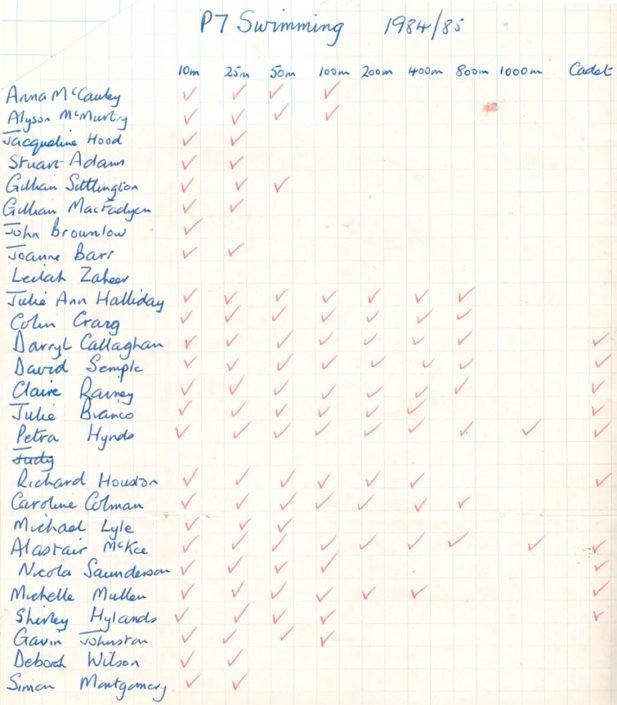 P7 Swimming 1984/85
10m 25m 50m 100m 200m 400m 800m 1000m Cadet
Anna McCauley ✓ ✓ ✓ ✓
Alyson McMurtry ✓ ✓ ✓ ✓
Jacqueline Hood ✓ ✓
Stuart Adams ✓ ✓
Gillian Sittlington ✓ ✓ ✓
Gillian MacFadyen ✓ ✓
John Brownlow ✓
Joanne Barr ✓ ✓
Leilah Zaheer
Julie Ann Halliday ✓ ✓ ✓ ✓ ✓ ✓ ✓
Colin Craig ✓ ✓ ✓ ✓ ✓ ✓ ✓
Darryl Callaghan ✓ ✓ ✓ ✓ ✓ ✓ ✓ ✓
David Semple ✓ ✓ ✓ ✓ ✓ ✓ ✓ ✓
Claire Rainey ✓ ✓ ✓ ✓ ✓ ✓ ✓ ✓
Julie Bianco ✓ ✓ ✓ ✓ ✓ ✓ ✓
Petra Hynds ✓ ✓ ✓ ✓ ✓ ✓ ✓ ✓ ✓
Judy
Richard Houston ✓ ✓ ✓ ✓ ✓ ✓ ✓
Caroline Colman ✓ ✓ ✓ ✓ ✓ ✓ ✓
Michael Lyle ✓ ✓ ✓
Alastair McKee ✓ ✓ ✓ ✓ ✓ ✓ ✓ ✓ ✓
Nicola Saunderson ✓ ✓ ✓ ✓ ✓
Michelle Mullen ✓ ✓ ✓ ✓ ✓ ✓ ✓
Shirley Hylands ✓ ✓ ✓ ✓ ✓
Gavin Johnston ✓ ✓ ✓ ✓
Deborah Wilson ✓ ✓
Simon Montgomery ✓ ✓